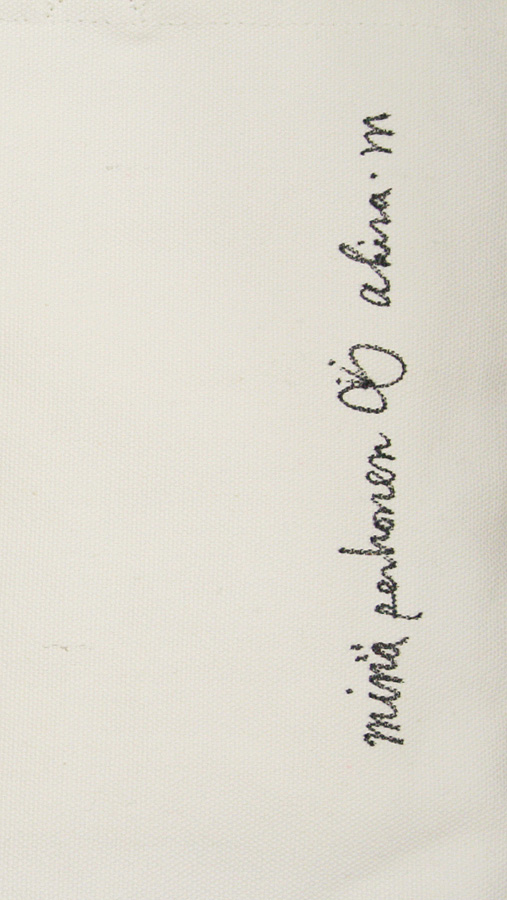 minä perhonen akira.m